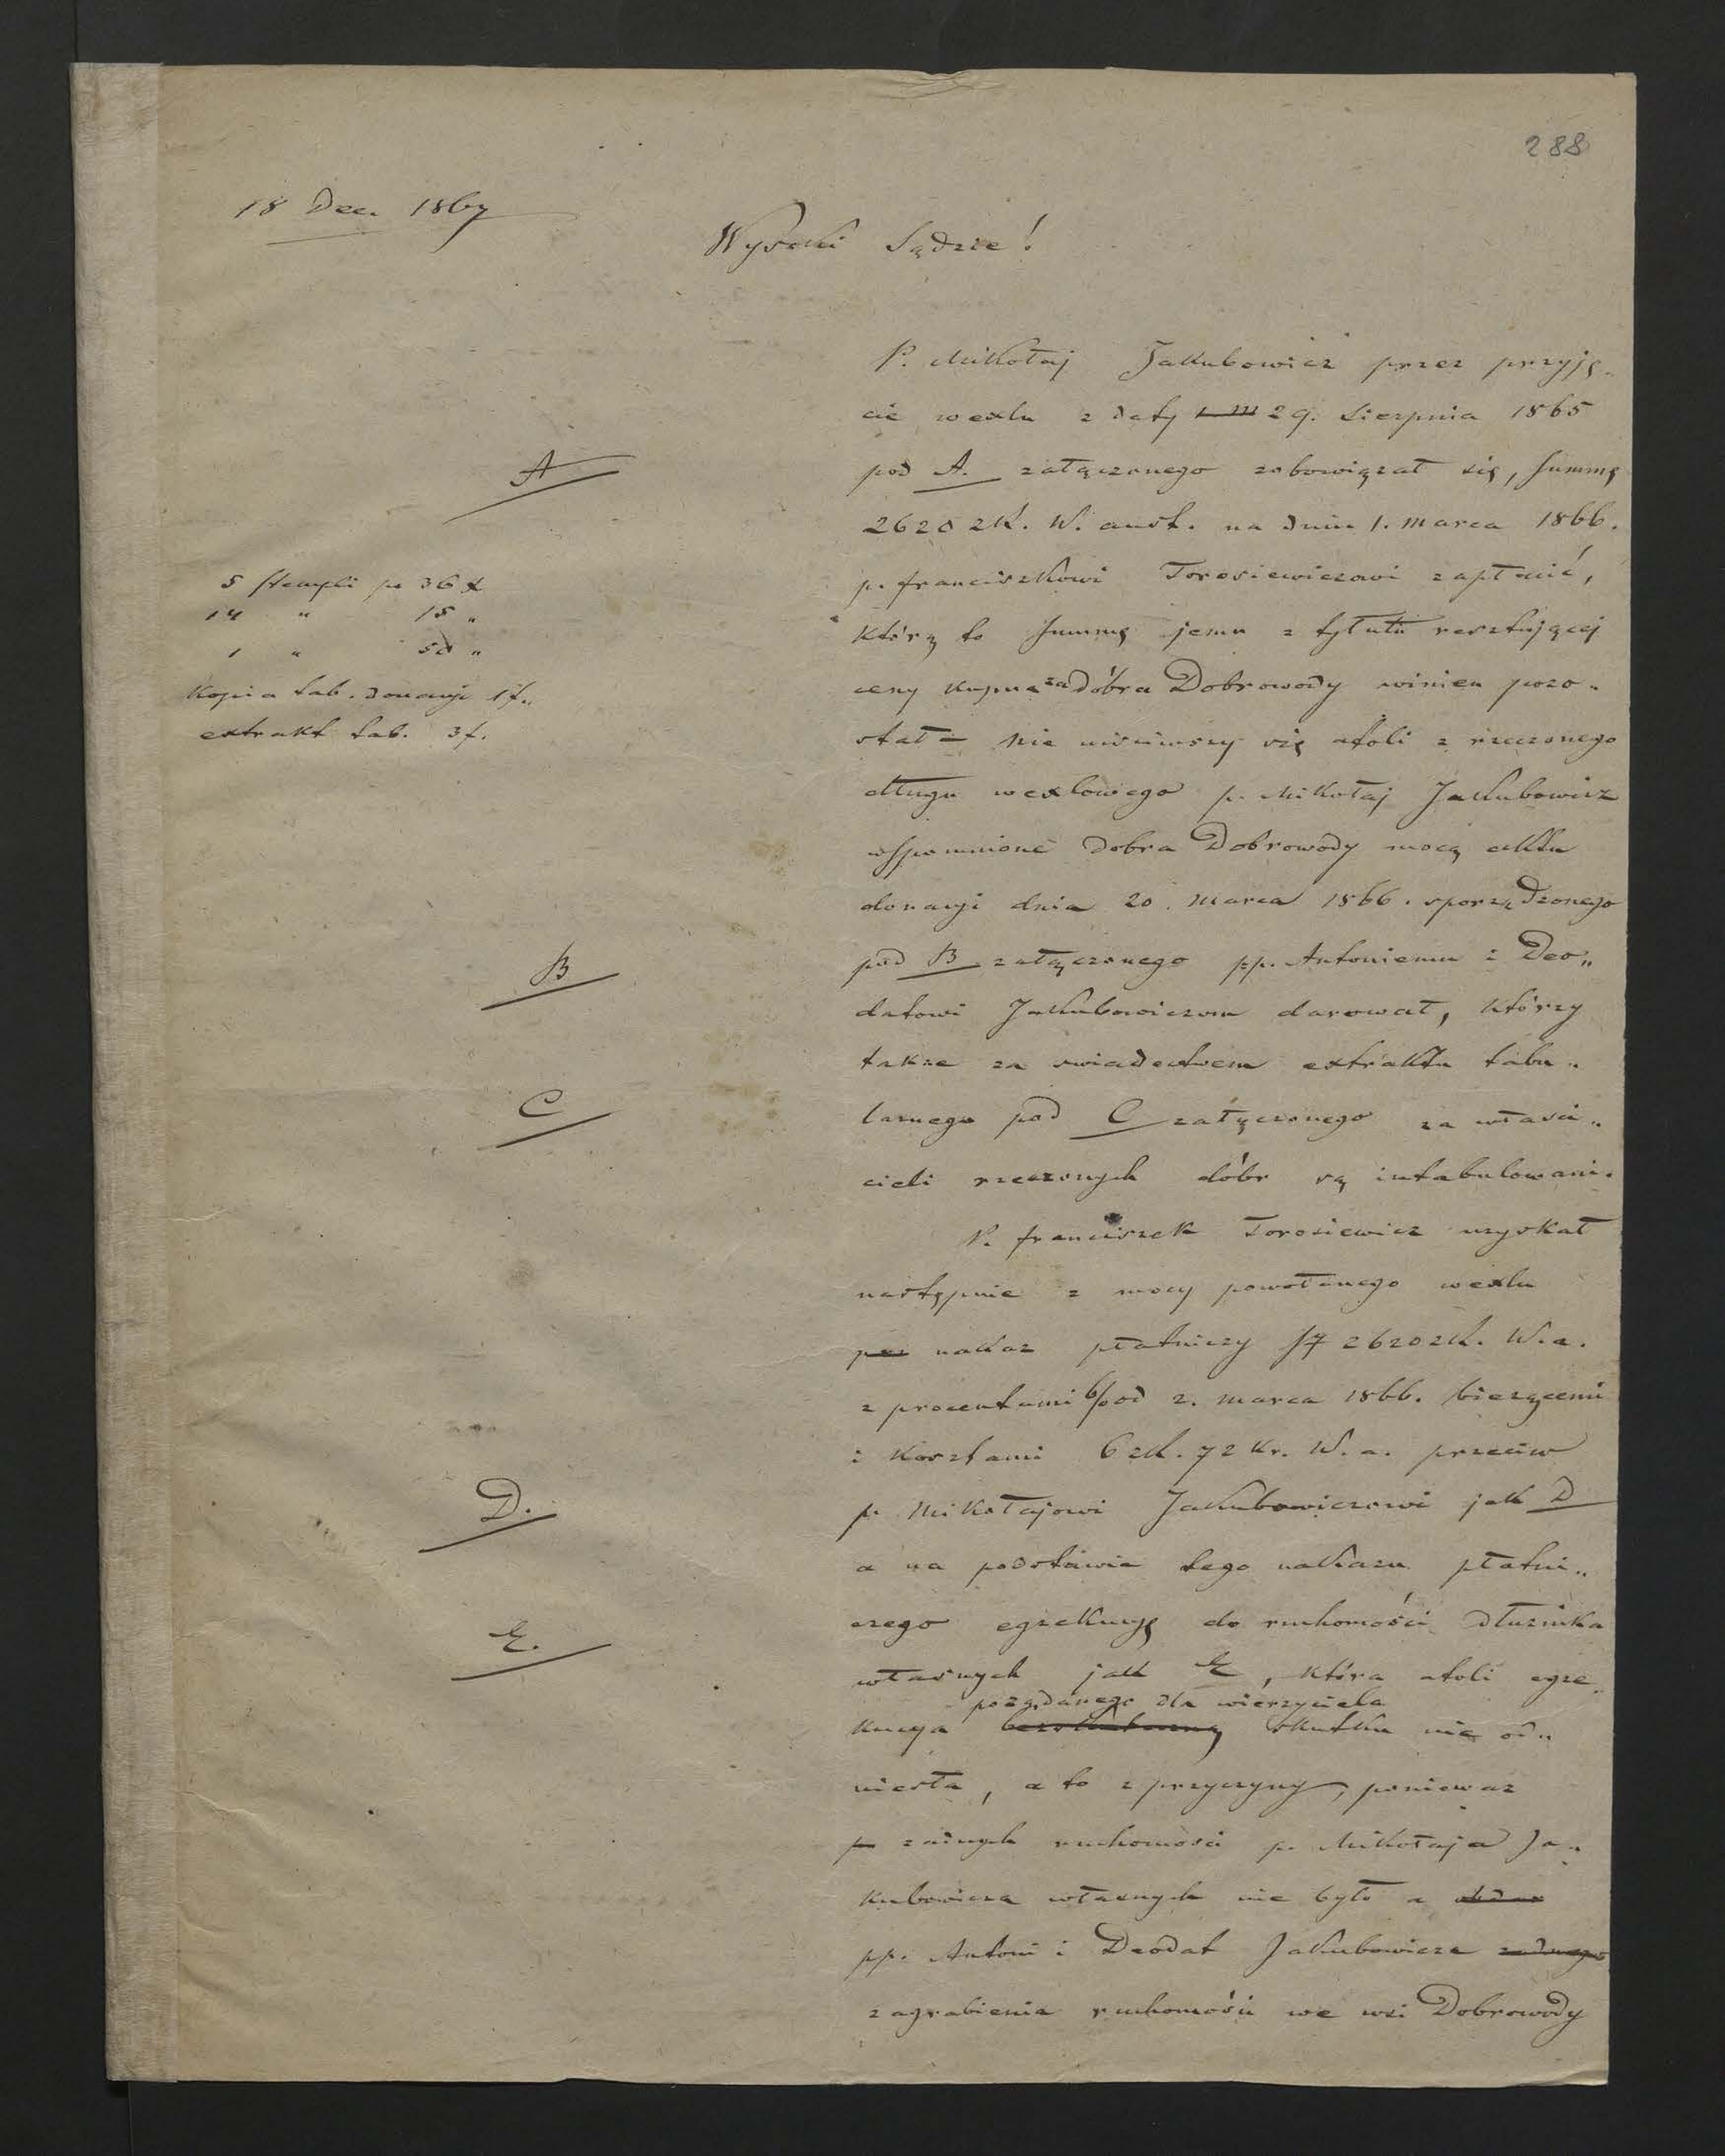 288
18 Dec. 1867
Wysoki Sądzie!
P. Mikołaj Jakubowicz przez przyję-
cie wexlu z daty 29. Sierpnia 1865
A
pod A. załączonego zobowiązał się, summę
2620 zł. W. aust. na dniu 1. Marca 1866.
p. franciszkowi Torosiewiczowi zapłacić,
5 stempli po 36 x
14 " 15 "
1 " 50 "
Kopia tab. donacyi 1 f.
extrakt tab. 3 f.
którą to summę jemu z tytułu resztującej
ceny kupna za dobra Dobrowody winien pozo-
stał – nie uisciwszy się atoli z rzeczonego
długu wexlowego p. Mikołaj Jakubowicz
wspomnione dobra Dobrowody mocą aktu
donacyi dnia 20. Marca 1866. sporządzonego
B
pod B załączonego pp. Antoniemu i Deo„
datowi Jakubowiczom darował, którzy
takze za swiadectwem extraktu tabu-
C
larnego pod C załączonego za własci„
cieli rzeczonych dóbr są intabulowani.
P. franciszek Torosiewicz uzyskał
następnie z mocy powołanego wexlu
nakaz płatniczy 2620 zł. W. a.
z procentami 6/ od 2. Marca 1866. bieżącemi
i kosztami 6 zł. 72 kr. W. a. przeciw
D.
p. Mikołajowi Jakubowiczowi jak D
a na podstawie tego nakazu płatni„
czego egzekucyę do ruchomości dłuznika
E.
własnych jak E, która atoli egze„
pożądanego dla wierzyciela
kucya bezskuteczną skutku nie od„
niosła, a to z przyczyny, poniewaz
p zadnych ruchomosci p. Mikołaja Ja-
kubowicza własnych nie było a
pp. Antoni i Deodat Jakubowicze zadnego
zagrabienia ruchomości we wsi Dobrowody